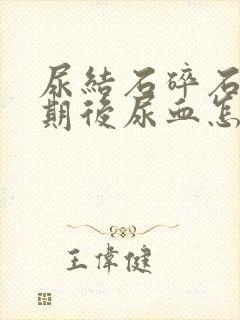 尿結石碎石
期後尿血怎
王偉健